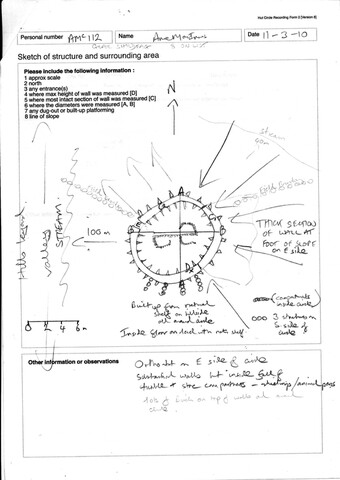 Hut Circle Recording Form C [Version 5]
Personal number AMC 112
Name
Date 11-3-10
Sketch of structure and surrounding area
Please include the following information :
1 approx scale
2 north
3 any entrance(s)
4 where max height of wall was measured [D]
5 where most intact section of wall was measured [C]
6 where the diameters were measured [A, B]
7 any dug-out or built-up platforming
8 line of slope
N
stream
60m
Hills beyond
valley
STREAM
100m
A
B
THICK SECTION
OF WALL AT
FOOT OF SLOPE
on E side
compartments
inside circle
3 structures on
S side of
circle
Built up from natural
shelf on hillside
all around circle
Inside floor on level with
0 2 4 6m
Other information or observations
on E side of circle
Substantial walls but inside full of
rubble & stone compartments - /animal pens
of on top of walls and around
circle